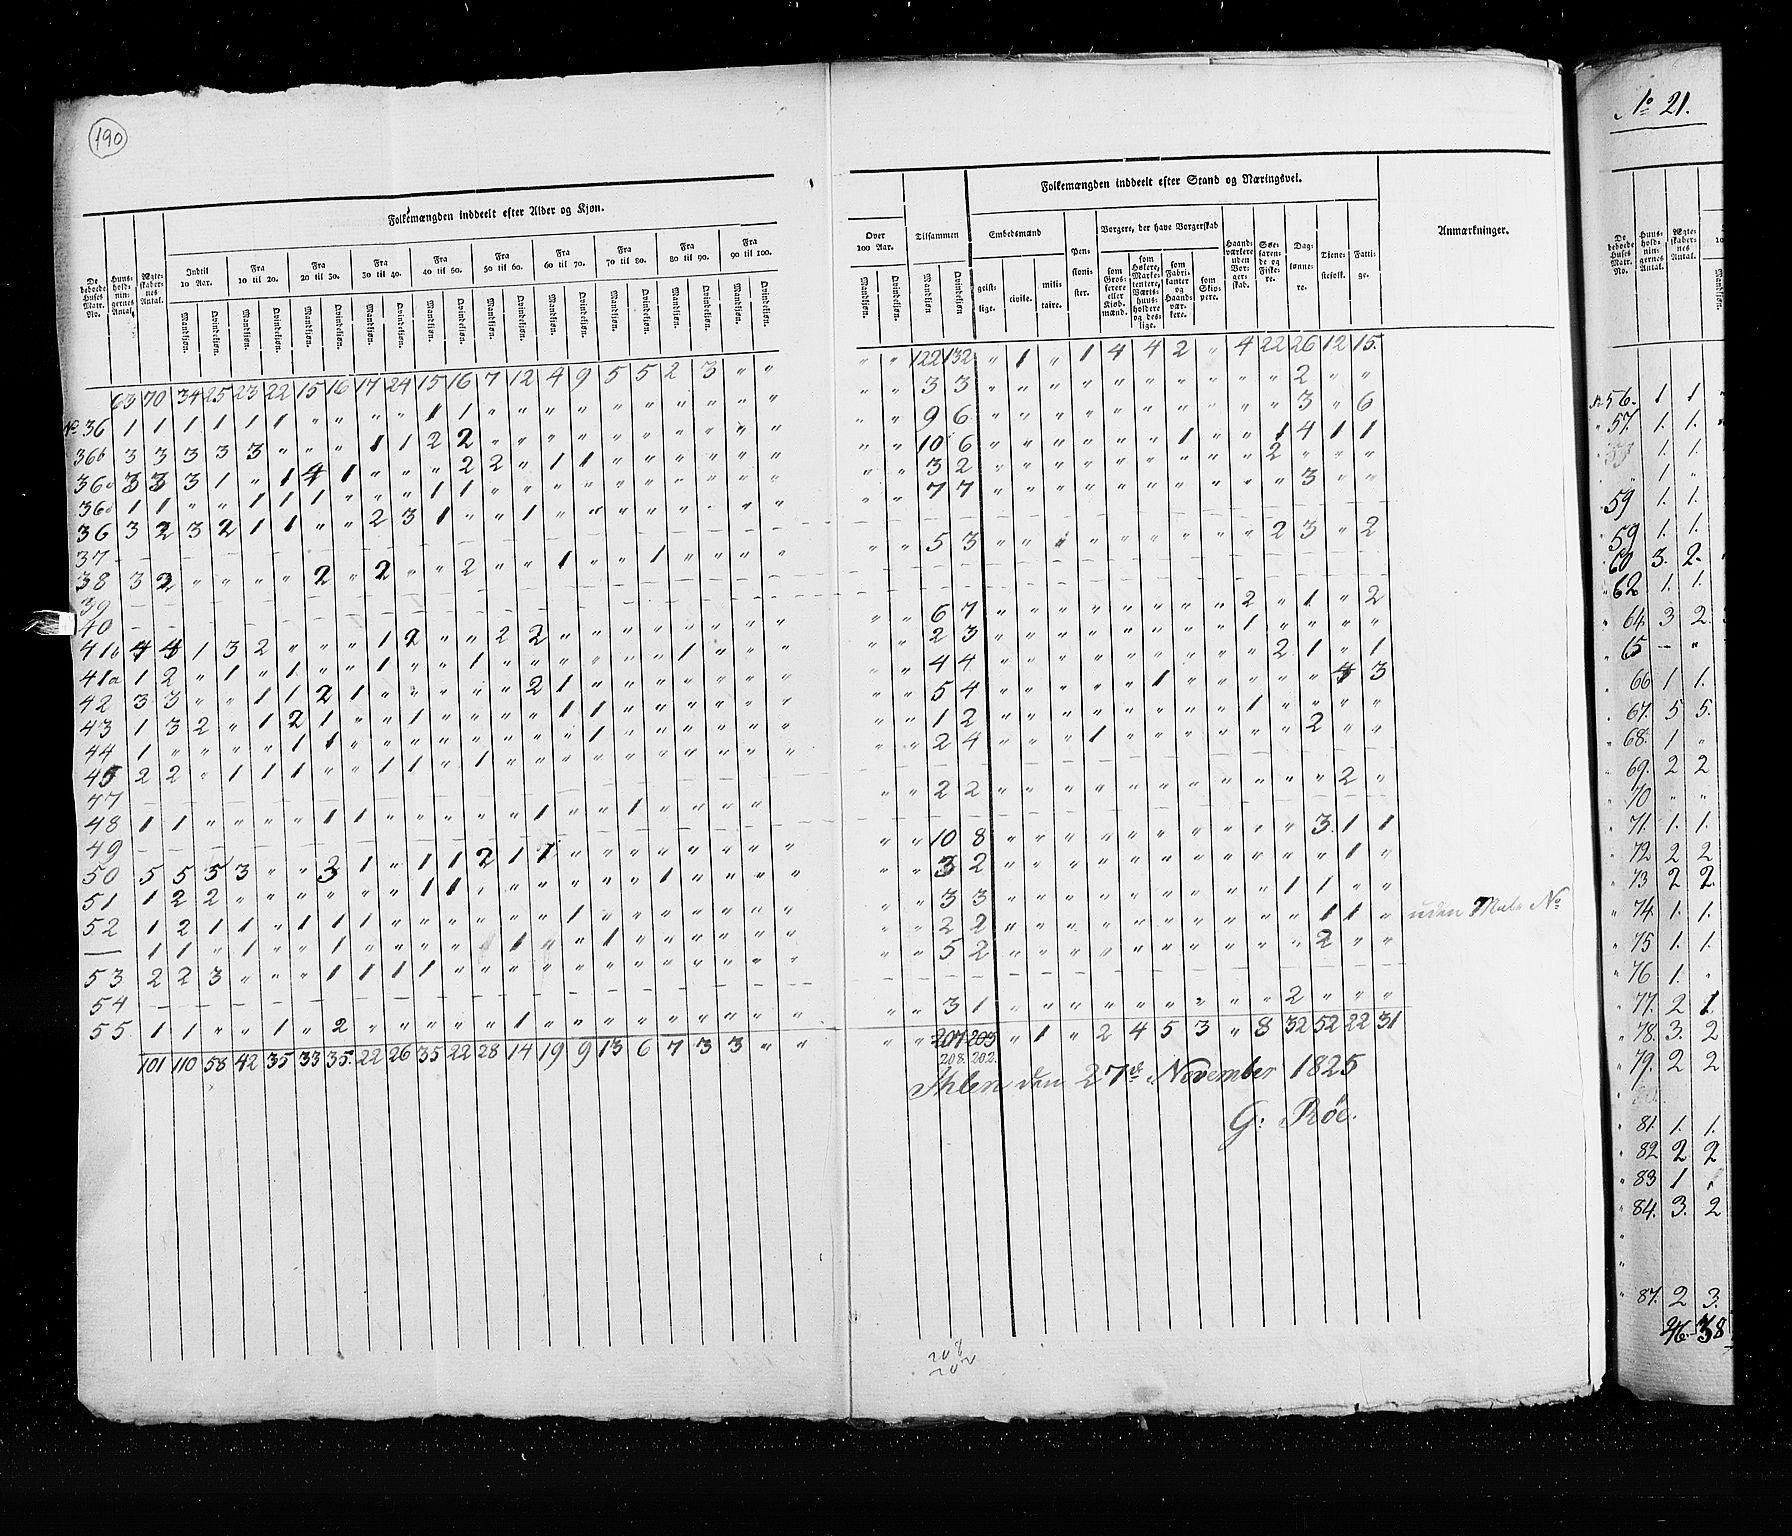 190
Folkemængden inddeelt efter Alder og Kjøn.
De beboede Huses Matr. No.
Huusholdningernes Antal.
Ægteskabernes Antal.
Indtil 10 Aar.
Fra 10 til 20.
Fra 20 til 30.
Fra 30 til 40.
Fra 40 til 50.
Fra 50 til 60.
Fra 60 til 70.
Fra 70 til 80.
Fra 80 til 90.
Fra 90 til 100.
Mandkjøn. Qvindekjøn. Mandkjøn. Qvindekjøn. Mandkjøn. Qvindekjøn. Mandkjøn. Qvindekjøn. Mandkjøn. Qvindekjøn. Mandkjøn. Qvindekjøn. Mandkjøn. Qvindekjøn. Mandkjøn. Qvindekjøn. Mandkjøn. Qvindekjøn. Mandkjøn. Qvindekjøn.
63 70 34 25 23 22 15 16 17 24 15 16 7 12 4 9 5 5 2 3 " "
No 36 1 1 1 1 1 1 " " " " 1 1 " " " " " " " " " "
36b 3 3 3 3 3 " " " 1 1 2 2 " " " " " " " " " "
36c 3 3 3 1 " 1 4 1 " " " 2 2 " 1 1 " " " " " "
36d 1 1 " " 1 1 1 " " " 1 1 " " " " " " " " " "
36 3 2 3 2 1 1 " " 2 3 1 " " 1 " " " " " " " "
37 – –
38 3 2 " " " " 2 " 2 " " 2 " " 1 " " 1 " " " "
39 – –
40 – –
41b 4 4 1 3 2 " " " 1 2 " " 2 2 " " " " " " " "
41a 1 2 " 1 " 1 " " 1 " " 1 " " " " " " 1 " " "
42 3 3 " " 1 1 2 1 " " " " " 2 1 " " " " " " "
43 1 3 2 " 1 2 1 " " 1 " " " " 1 1 " " " " " "
44 1 " " " " 1 1 " " " " " " " " 1 " " " " " "
45 2 2 " 1 1 1 " " 1 1 " 1 " " " " " " " " " "
47 – –
48 1 1 " " " " 1 1 " " " " " 1 " " 1 " " " " "
49 – –
50 5 5 5 3 " " 3 1 " 1 1 2 1 1 " " " " " " " "
51 1 2 2 " " " " " " 1 1 " " " " " " 1 " " " "
52 1 2 1 1 " 1 1 1 " " " " " " 1 " " " " " " "
— 1 1 " 1 " " 1 " " " " " 1 " " 1 " " " " " "
53 2 2 3 " " " 1 1 1 1 " " " " " " " " " " " "
54 – –
55 1 1 " " 1 " 2 " " " " " 1 " " " " " " " " "
101 110 58 42 35 33 35 22 26 35 22 28 14 19 9 13 6 7 3 3 " "
Over 100 Aar.
Tilsammen
Folkemængden inddeelt efter Stand og Næringsvei.
Anmærkninger.
Embedsmænd
Pensionister.
Borgere, der have Borgerskab
Haandværkere uden Borgerskab.
Søefarende og Fiskere.
Daglønnere.
Tienestefolk.
Fattige.
Mandkjøn. Qvindekjøn. Mandkjøn Qvindekjøn.
geistlige. civile. militaire.
som Grosserere eller Kjødmænd.
som Høkere, Marketentere, Værtshuusholdere og deslige.
som Fabrikanter og Haandværkere.
som Skippere.
" " 122 132 " 1 " 1 4 4 2 " 4 22 26 12 15.
" " 3 3 " " " " " " " " " " 2 " "
" " 9 6 " " " " " " " " " " 3 " 6
" " 10 6 " " " " " " 1 " " 1 4 1 1
" " 3 2 " " " " " " " " " 2 " " "
" " 7 7 " " " " " " " " " " 3 " "
" " 5 3 " " " " " " " " " 2 3 " 2
" " 6 7 " " " " " " " " 2 " 1 " 2
" " 2 3 " " " " " " " " 1 " " " "
" " 4 4 " " " " " " " " " 2 1 " 1
" " 5 4 " " " " " 1 " " " " " 4 3
" " 1 2 " " " " " " " " 1 " " " "
" " 2 4 " " " 1 " " " " " " 2 " "
" " 2 2 " " " " " " " " " " " 2 "
" " 10 8 " " " " " " " " " " 3. 1 1
" " 3 2 " " " " " " " " " " " 1 "
" " 3 3 " " " " " " " " " 1 1 " "
" " 2 2 " " " " " " " " " " 1 1 " uden Mats No
" " 5 2 " " " " " " " " " " 2 " "
" " 3 1 " " " " " " " " " 2 " " "
" " 207 203 " 1 " 2 4 5 3 " 8 32 52 22 31
208. 202.
Ihlen den 27de November 1825
G: Röe.
208
202
No 21.
De beboede Huses Matr. No.
Huusholdningernes Antal.
Ægteskabernes Antal.
No 56. 1 1
" 57. 1. 1.
" 1 "
59 1. 1.
59 1. 1.
60 3. 2.
62 1. 1.
64. 3 2.
65 – "
66 1 1.
67. 5 5.
68. 1 "
69. 2 2
70 " "
71. 1. 1.
72 2 2
73 2 2.
74. 1. 1.
75 1. 1.
76 1. "
77. 2 1.
78. 3. 2
79. 2 2
81. 1. 1.
82 2 2
83 1 "
84. 3. 2
"
"
87. 2 3.
38